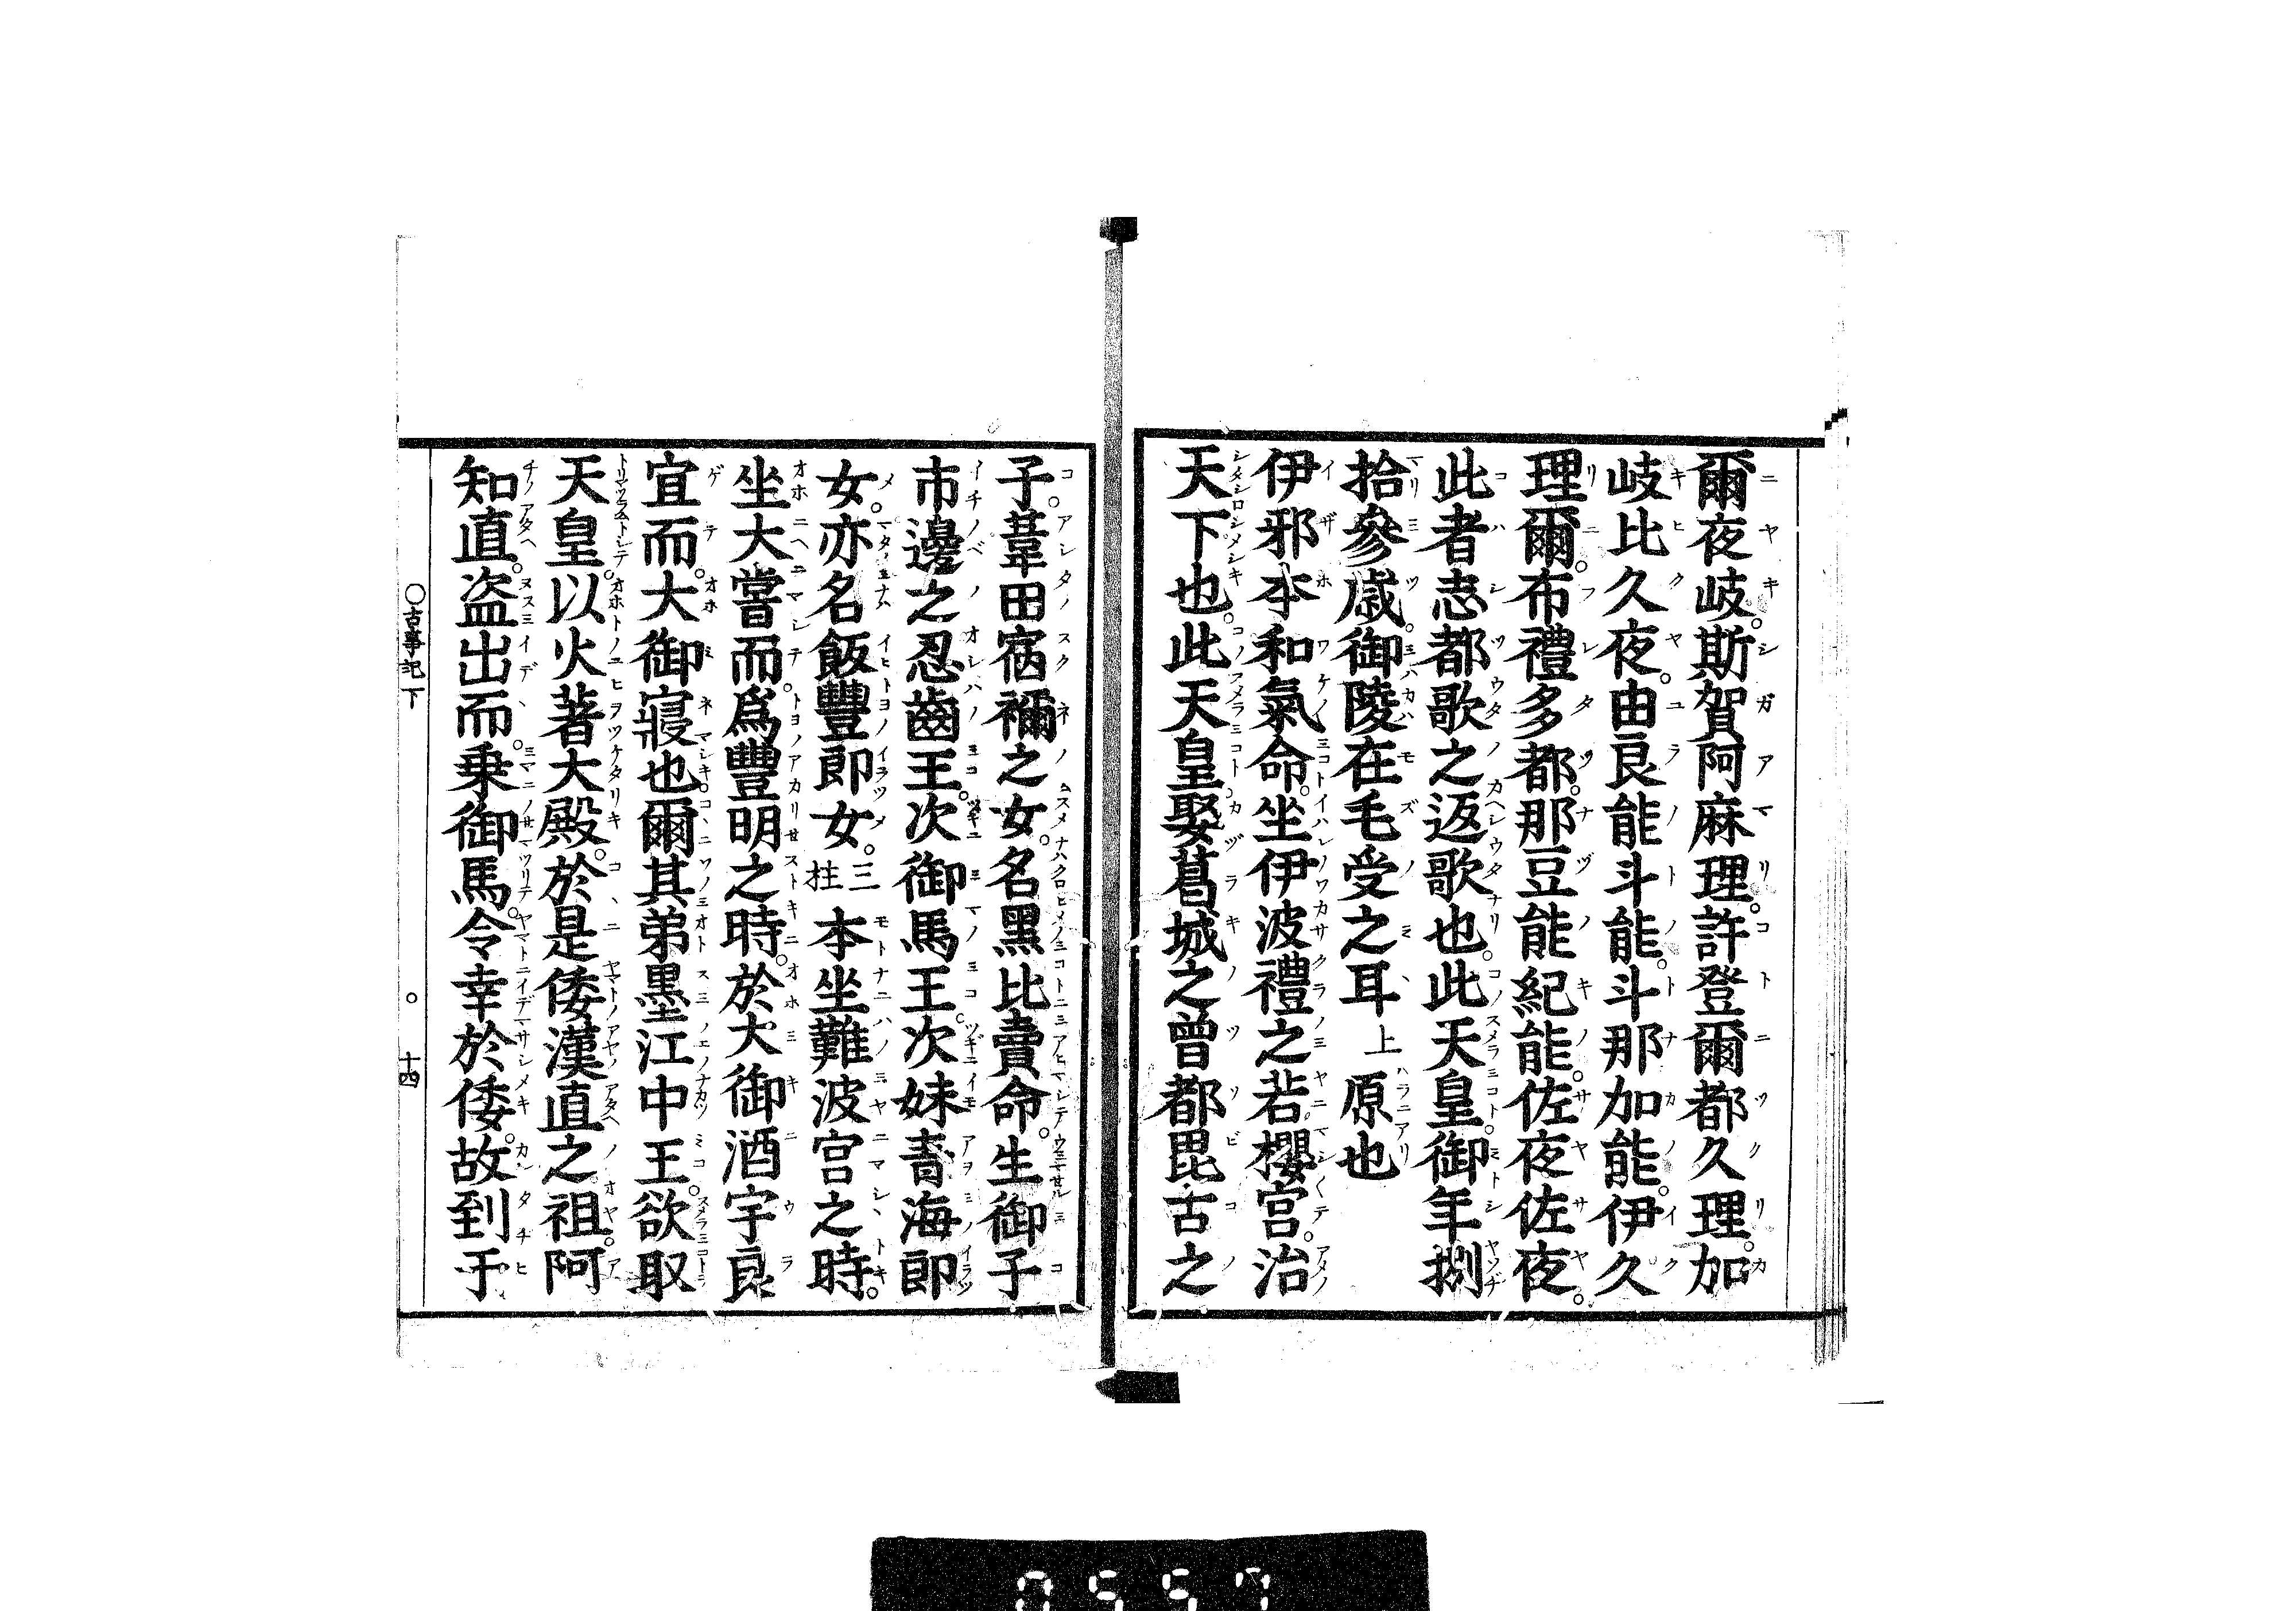 爾夜岐。斯賀阿麻理。許登爾都久理。加
岐比久夜。由良能斗能。斗那加能。伊久
理爾。布禮多都。那豆能紀能。佐夜佐夜。
此者志都歌之返歌也。此天皇御年捌
拾參歲。御陵在毛受之耳上原也
伊邪本和氣命。坐伊波禮之若櫻宮。治
天下也。此天皇娶葛城之曾都毘古之
子。葦田宿禰之女。名黑比賣命。生御子
市邊之忍齒王。次御馬王。次妹青海郎
女。亦名飯豐郎女。三柱 本坐難波宮之時。
坐大嘗而。爲豐明之時。於大御酒宇良
宜而。大御寢也。爾其弟墨江中王。欲取
天皇。以火著大殿。於是倭漢直之祖。阿
知直。盗出而。乗御馬。令幸於倭。故到于
○古事記下 ○ 十四
0557